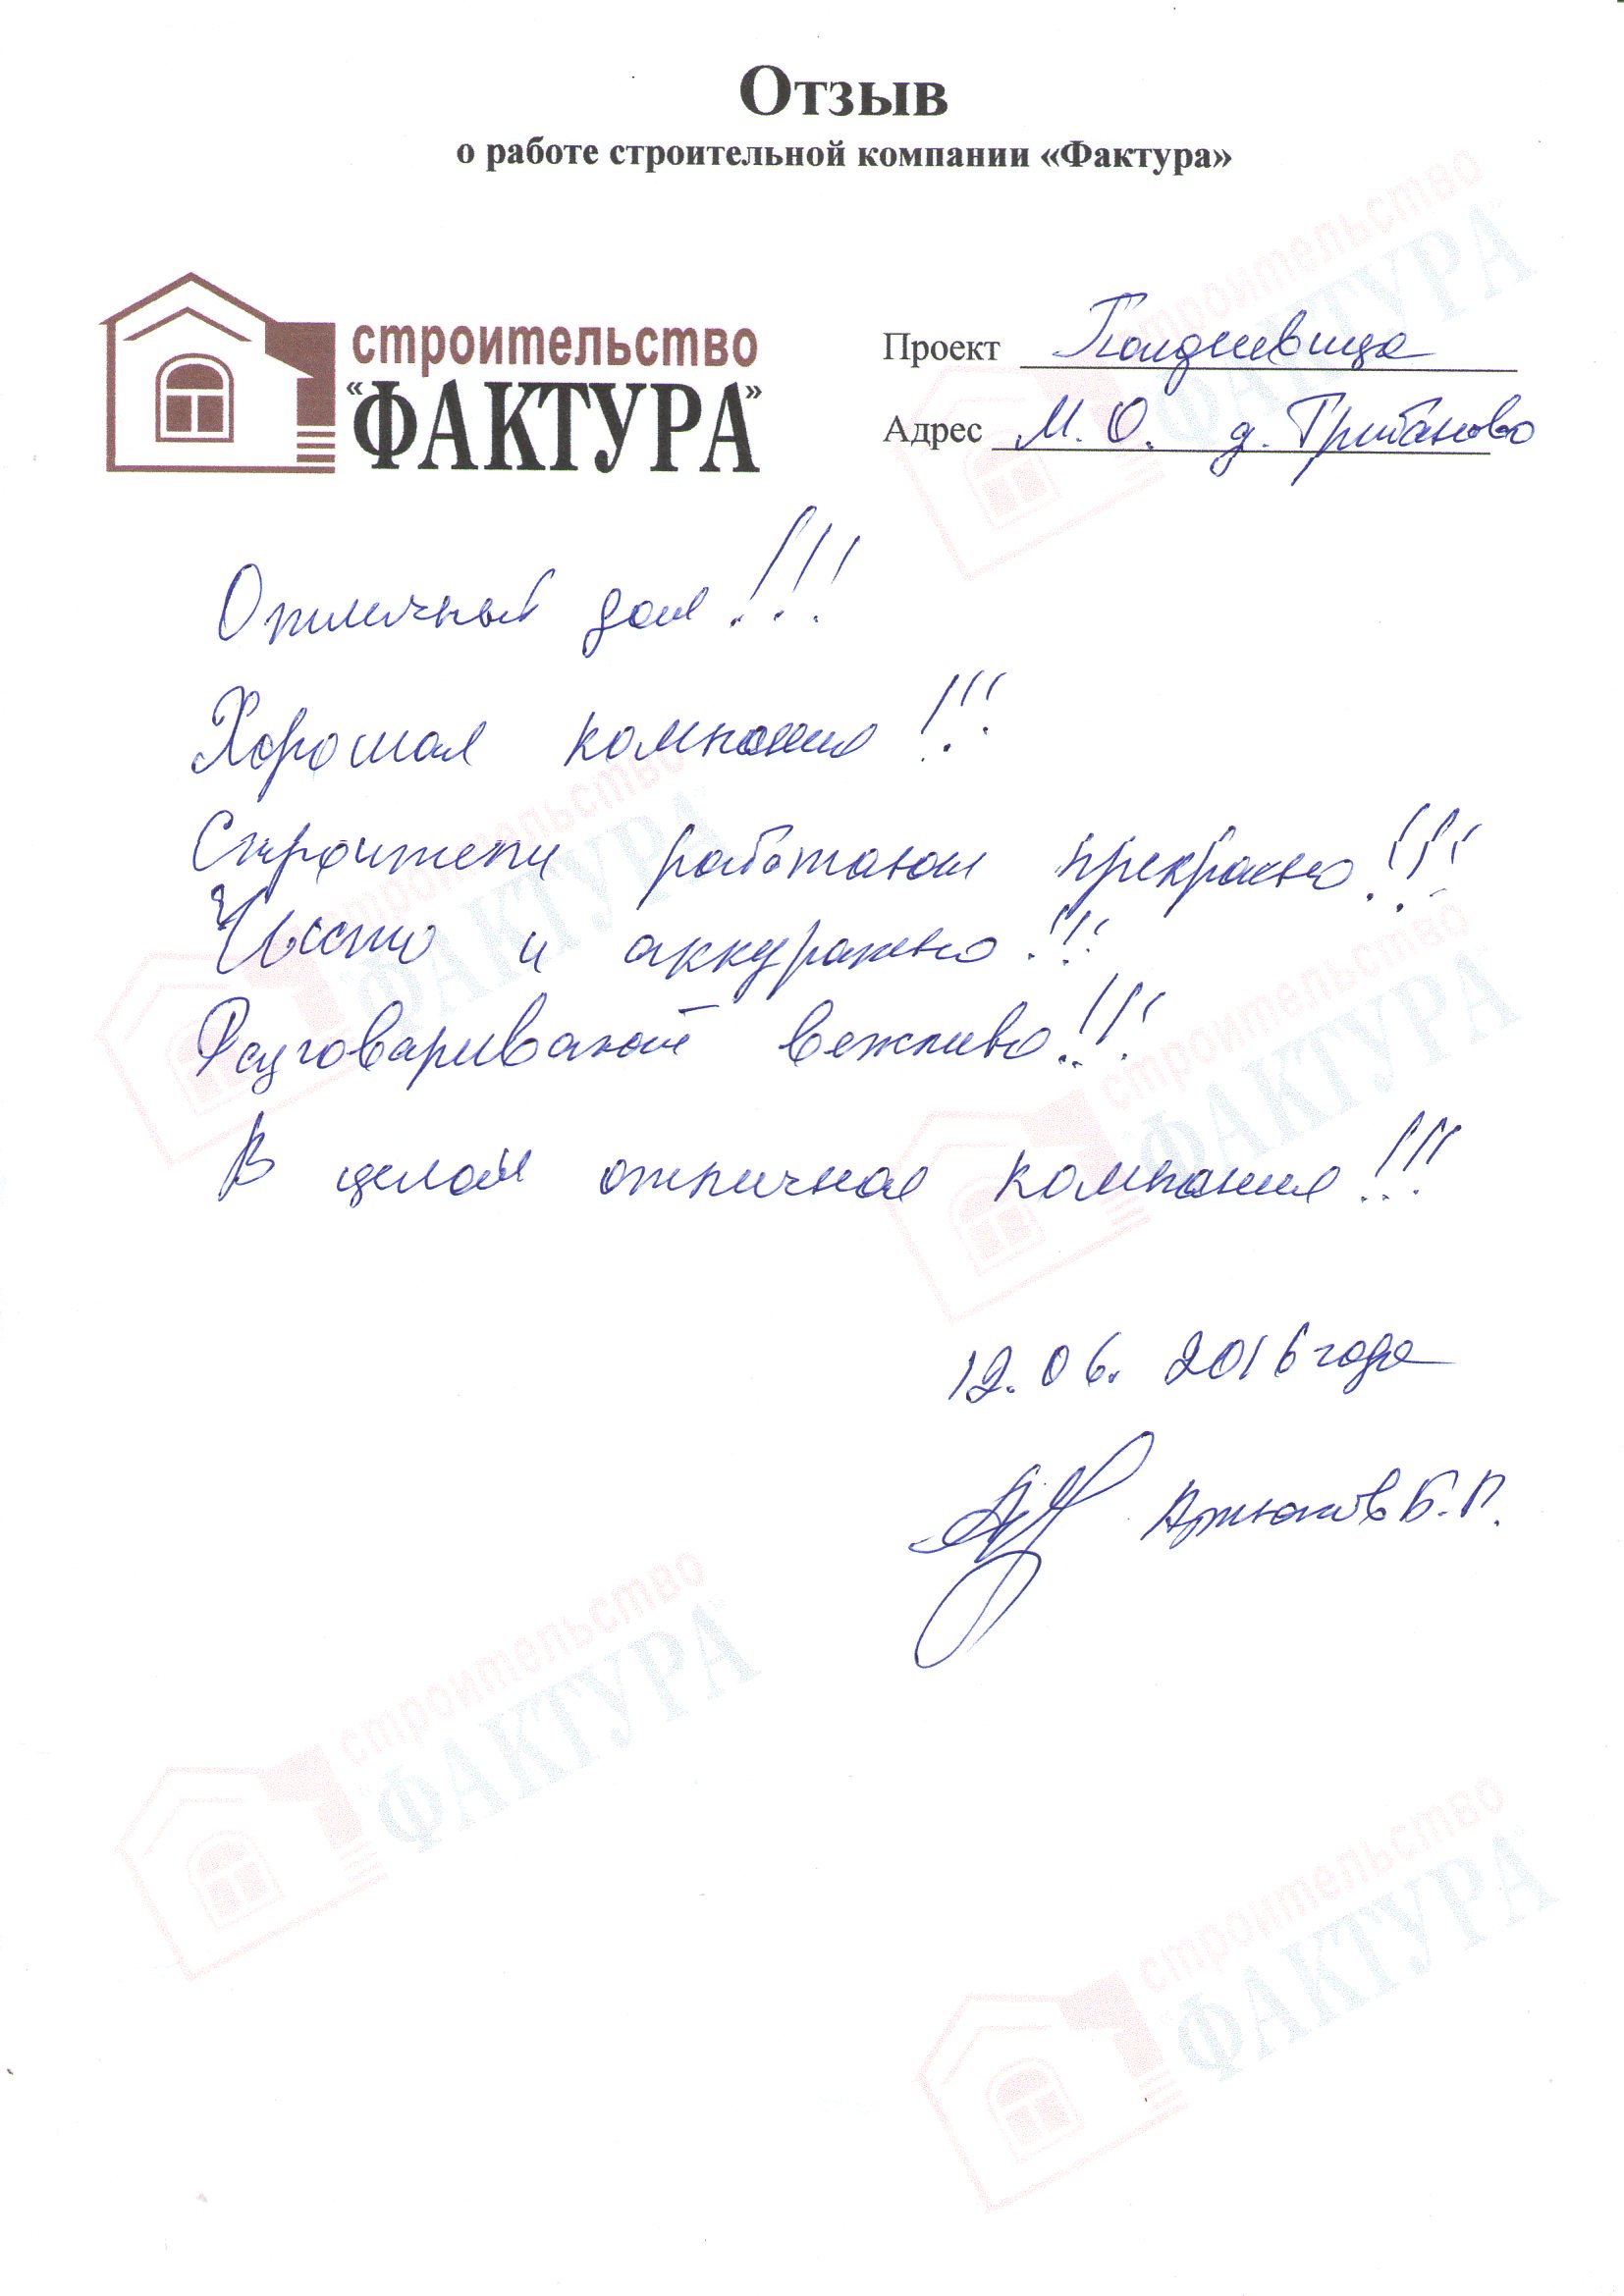 Отзыв
о работе строительной компании «Фактура»
строительство
"ФАКТУРА"
Проект
Адрес М.О. д. Грибаново
Отличный дом!!!
Хорошая компания!!!
Строители работают прекрасно!!!
Чисто и аккуратно!!!
Разговаривают вежливо!!!
В целом отличная компания!!!
12.06.2016 года
Артюков Б.П.